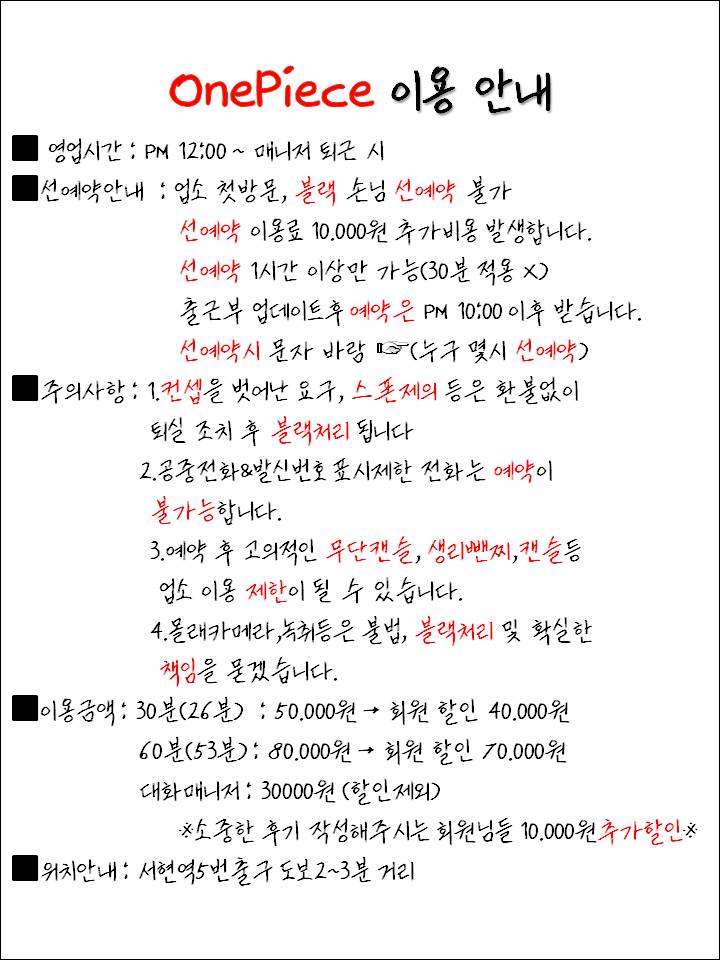 OnePiece 이용 안내
■ 영업시간 : PM 12:00 ~ 매니저 퇴근 시
■선예약안내 : 업소 첫방문, 블랙 손님 선예약 불가
선예약 이용료 10.000원 추가비용 발생합니다.
선예약 1시간 이상만 가능(30분 적용 X)
출근부 업데이트후 예약은 PM 10:00 이후 받습니다.
선예약시 문자 바람 ☞(누구 몇시 선예약)
■주의사항 : 1.컨셉을 벗어난 요구, 스폰제의 등은 환불없이
퇴실 조치 후 블랙처리 됩니다
2.공중전화&발신번호 표시제한 전화는 예약이
불가능합니다.
3.예약 후 고의적인 무단캔슬, 생리뺀찌,캔슬등
업소 이용 제한이 될 수 있습니다.
4.몰래카메라,녹취등은 불법, 블랙처리 및 확실한
책임을 묻겠습니다.
■이용금액 : 30분(26분) : 50.000원 → 회원 할인 40.000원
60분(53분) : 80.000원 → 회원 할인 70.000원
대화매니저 : 30000원 (할인제외)
※소중한 후기 작성해주시는 회원님들 10.000원추가할인※
■위치안내 : 서현역5번출구 도보2~3분 거리